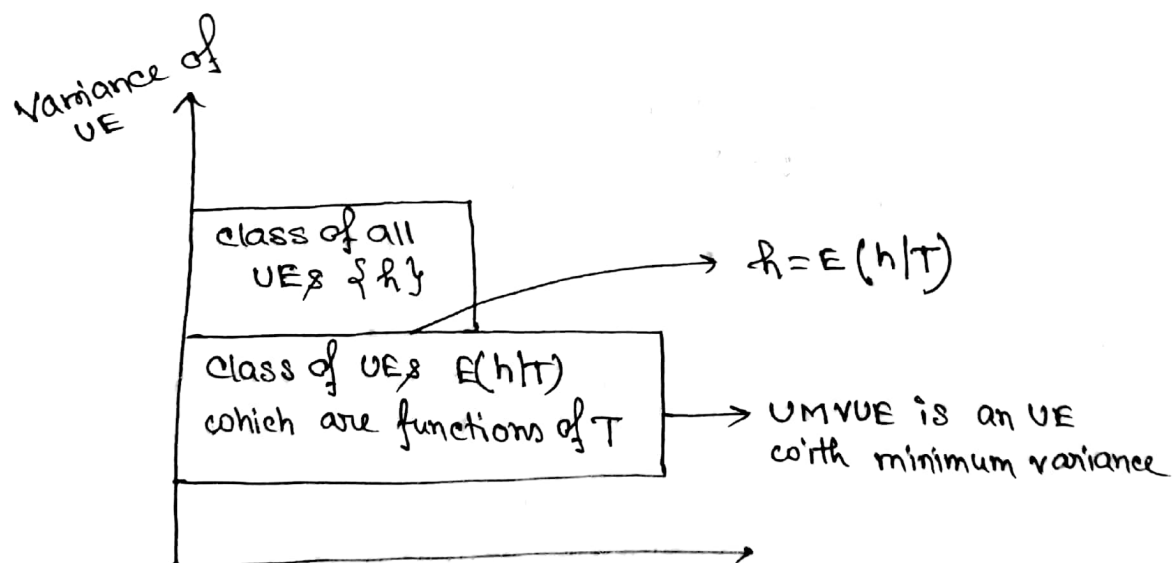 Variance of
UE
class of all
UEs {h}
h = E(h|T)
class of UEs E(h|T)
which are functions of T
UMVUE is an UE
with minimum variance